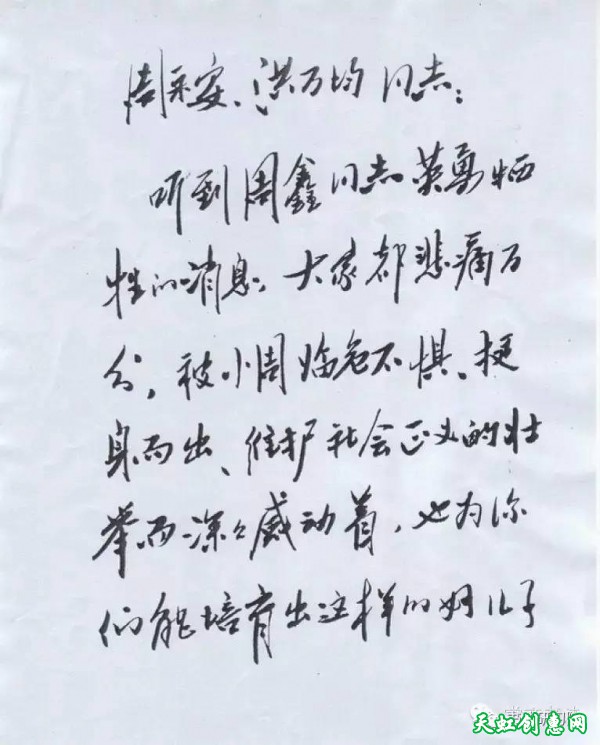 周永安、洪万均同志：
听到周鑫同志英勇牺
牲的消息，大家都悲痛万
分，被小周临危不惧、挺
身而出、维护社会正义的壮
举而深深感动着，也为你
们能培育出这样的好儿子
天虹创意网